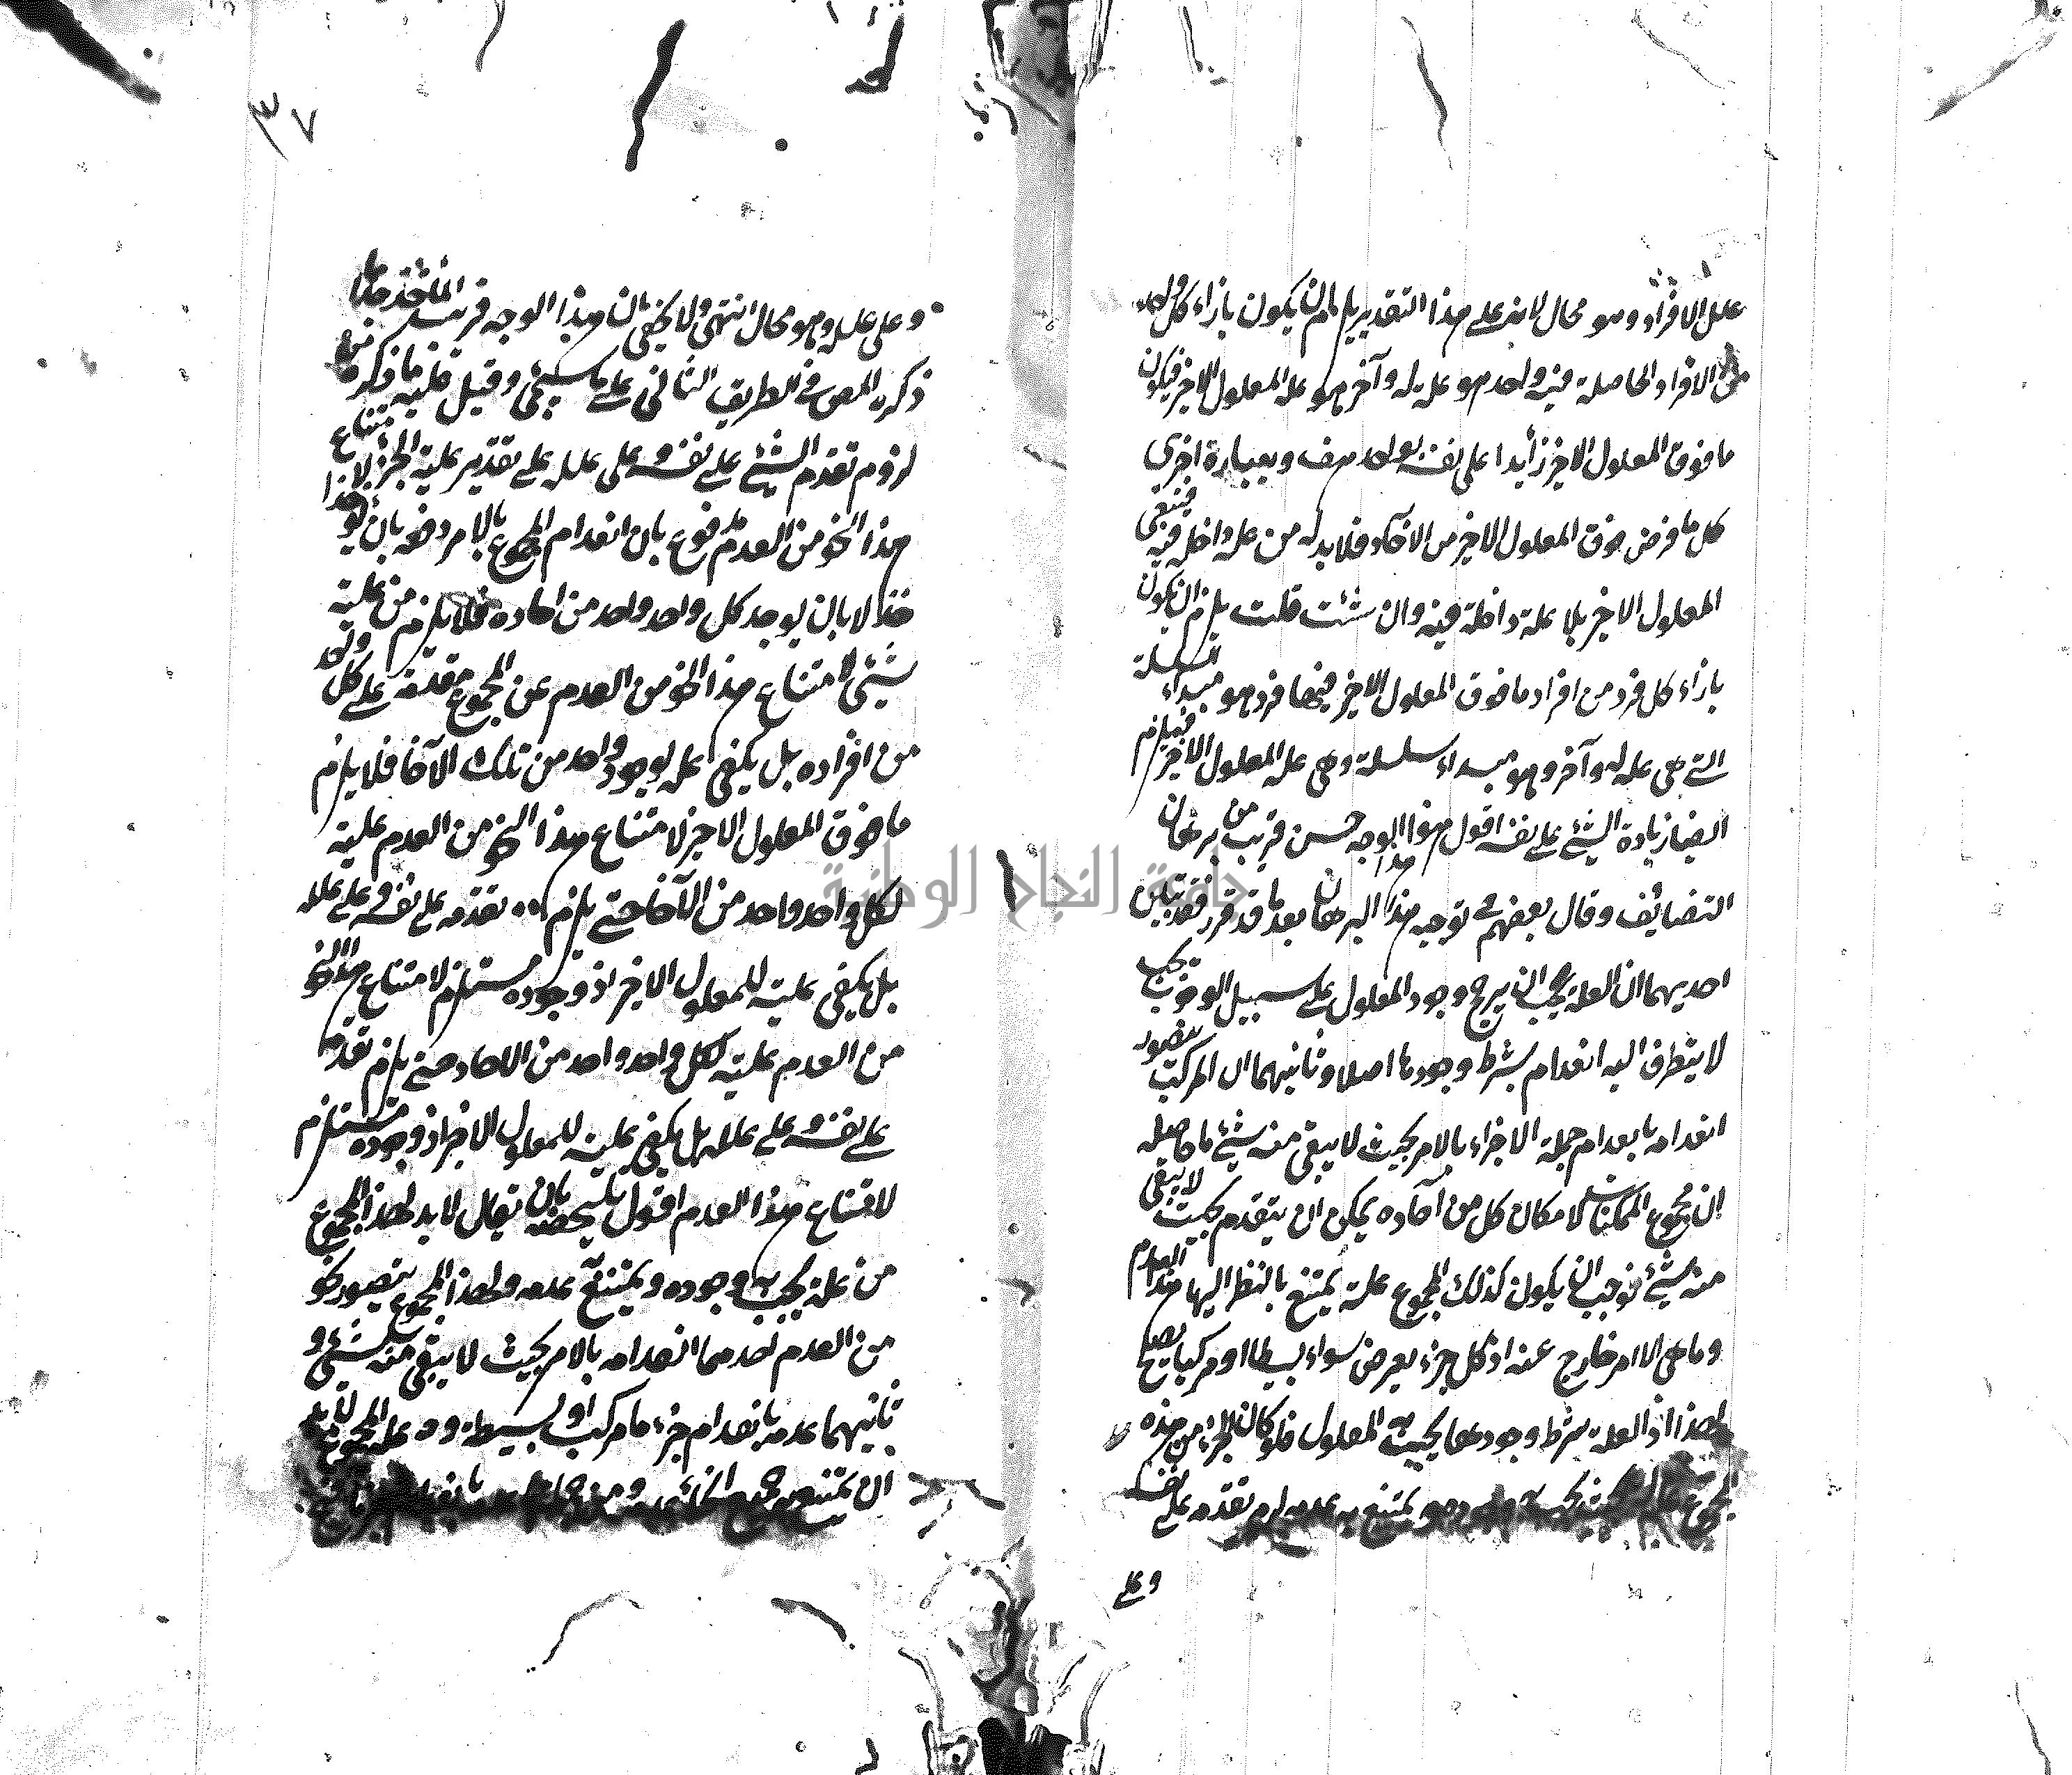 علل الافراد وهو محال لانه على هذا التقدير يلزم ان يكون بازاء كل واحد
من الافراد الحاصلة فيه واحد هو علة له وآخر هو علة المعلول الاخير فيكون
ما فوق المعلول الاخير زايدا على نفسه بواحد هف وبعبارة اخرى
كل ما فرض فوق المعلول الاخير من الآحاد فلا بد له من علة داخلة فيه فيبقى
المعلول الاخير بلا علة داخلة فيه وان شئت قلت يلزم ان يكون
بازاء كل فرد من افراد ما فوق المعلول الاخير فيها فرد هو مبداء السلسلة
التي هى علة له وآخر وهو مبداء سلسلة وهى علة المعلول الاخير فيلزم
ايضا زيادة الشئ على نفسه اقول هذا الوجه حسن قريب من برهان
التضايف وقال بعضهم فى توجيه هذا البرهان بعد ما قد قرر مقدمتين
احديهما ان العلة يجب ان يرجح وجود المعلول على سبيل الوجوب بحيث
لا يتطرق اليه انعدام بشرط وجودها اصلا وثانيهما ان المركب يتصور
انعدامه بانعدام جملة الاجزاء بالامر بحيث لا يبقى منه شئ ما حاصله
ان مجموع الممكنات لامكان كل من آحاده يمكن ان ينعدم بحيث لا يبقى
منه شئ فوجب ان يكون كذلك المجموع علة يمتنع بالنظر اليها هذا العدم
وما هى الا امر خارج عنه اذ كل جزء يعرض سواء بسيطا او مركبا يصلح
لهذا اذ العلة بشرط وجودها يجب به المعلول فلو كان الجزء من هذه
المجموع بحيث يجب به وجوده ويمتنع به عدمه لزم تقدمه على نفسه
وعلى
٣٧
وعلى علله وهو محال انتهى ولا يخفى ان هذا الوجه قريب المأخذ مما
ذكره المص فى الطريق الثانى على ما سيجئ وقيل فليه ما ذكره من
لزوم تقدم الشئ على نفسه وعلى علله على تقدير علية الجزء لامتناع
هذا النحو من العدم مدفوع بان انعدام المجموع بالامر وضعه بان لا يوجد هذا
هذا لا بان يوجد كل واحد واحد من احاده فلا يلزم من علية
شئ لامتناع هذا النحو من العدم عن المجموع تقدمه على كل واحد
من افراده بل يكفى علة لوجود واحد من تلك الآحاد فلا يلزم
ما فوق المعلول الاخير لامتناع هذا النحو من العدم علية
لكل واحد واحد من الآحاد حتى يلزم تقدمه على نفسه وعلى علله
بل يكفى علية للمعلول الاخير اذ وجوده مستلزم لامتناع هذا النحو
من العدم علية لكل واحد واحد من الاحاد حتى يلزم تقدمه
على نفسه وعلى علله بل يكفى علية للمعلول الاخير اذ وجوده مستلزم
لامتناع هذا العدم اقول بان يقال لا بد لهذا المجموع
من علة يجب به وجوده ويمتنع عدمه ولهذا المجموع يتصور نحو
من العدم احدهما انعدامه بالامر بحيث لا يبقى منه شئ و
ثانيهما عدمه بانعدام جزء ما مركب او بسيطة علة المجموع لا بد
ان يمتنع جميع